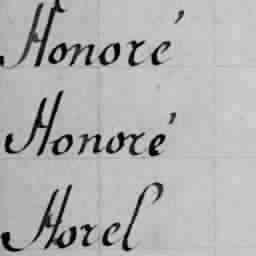 Honoré
Honoré
Horel